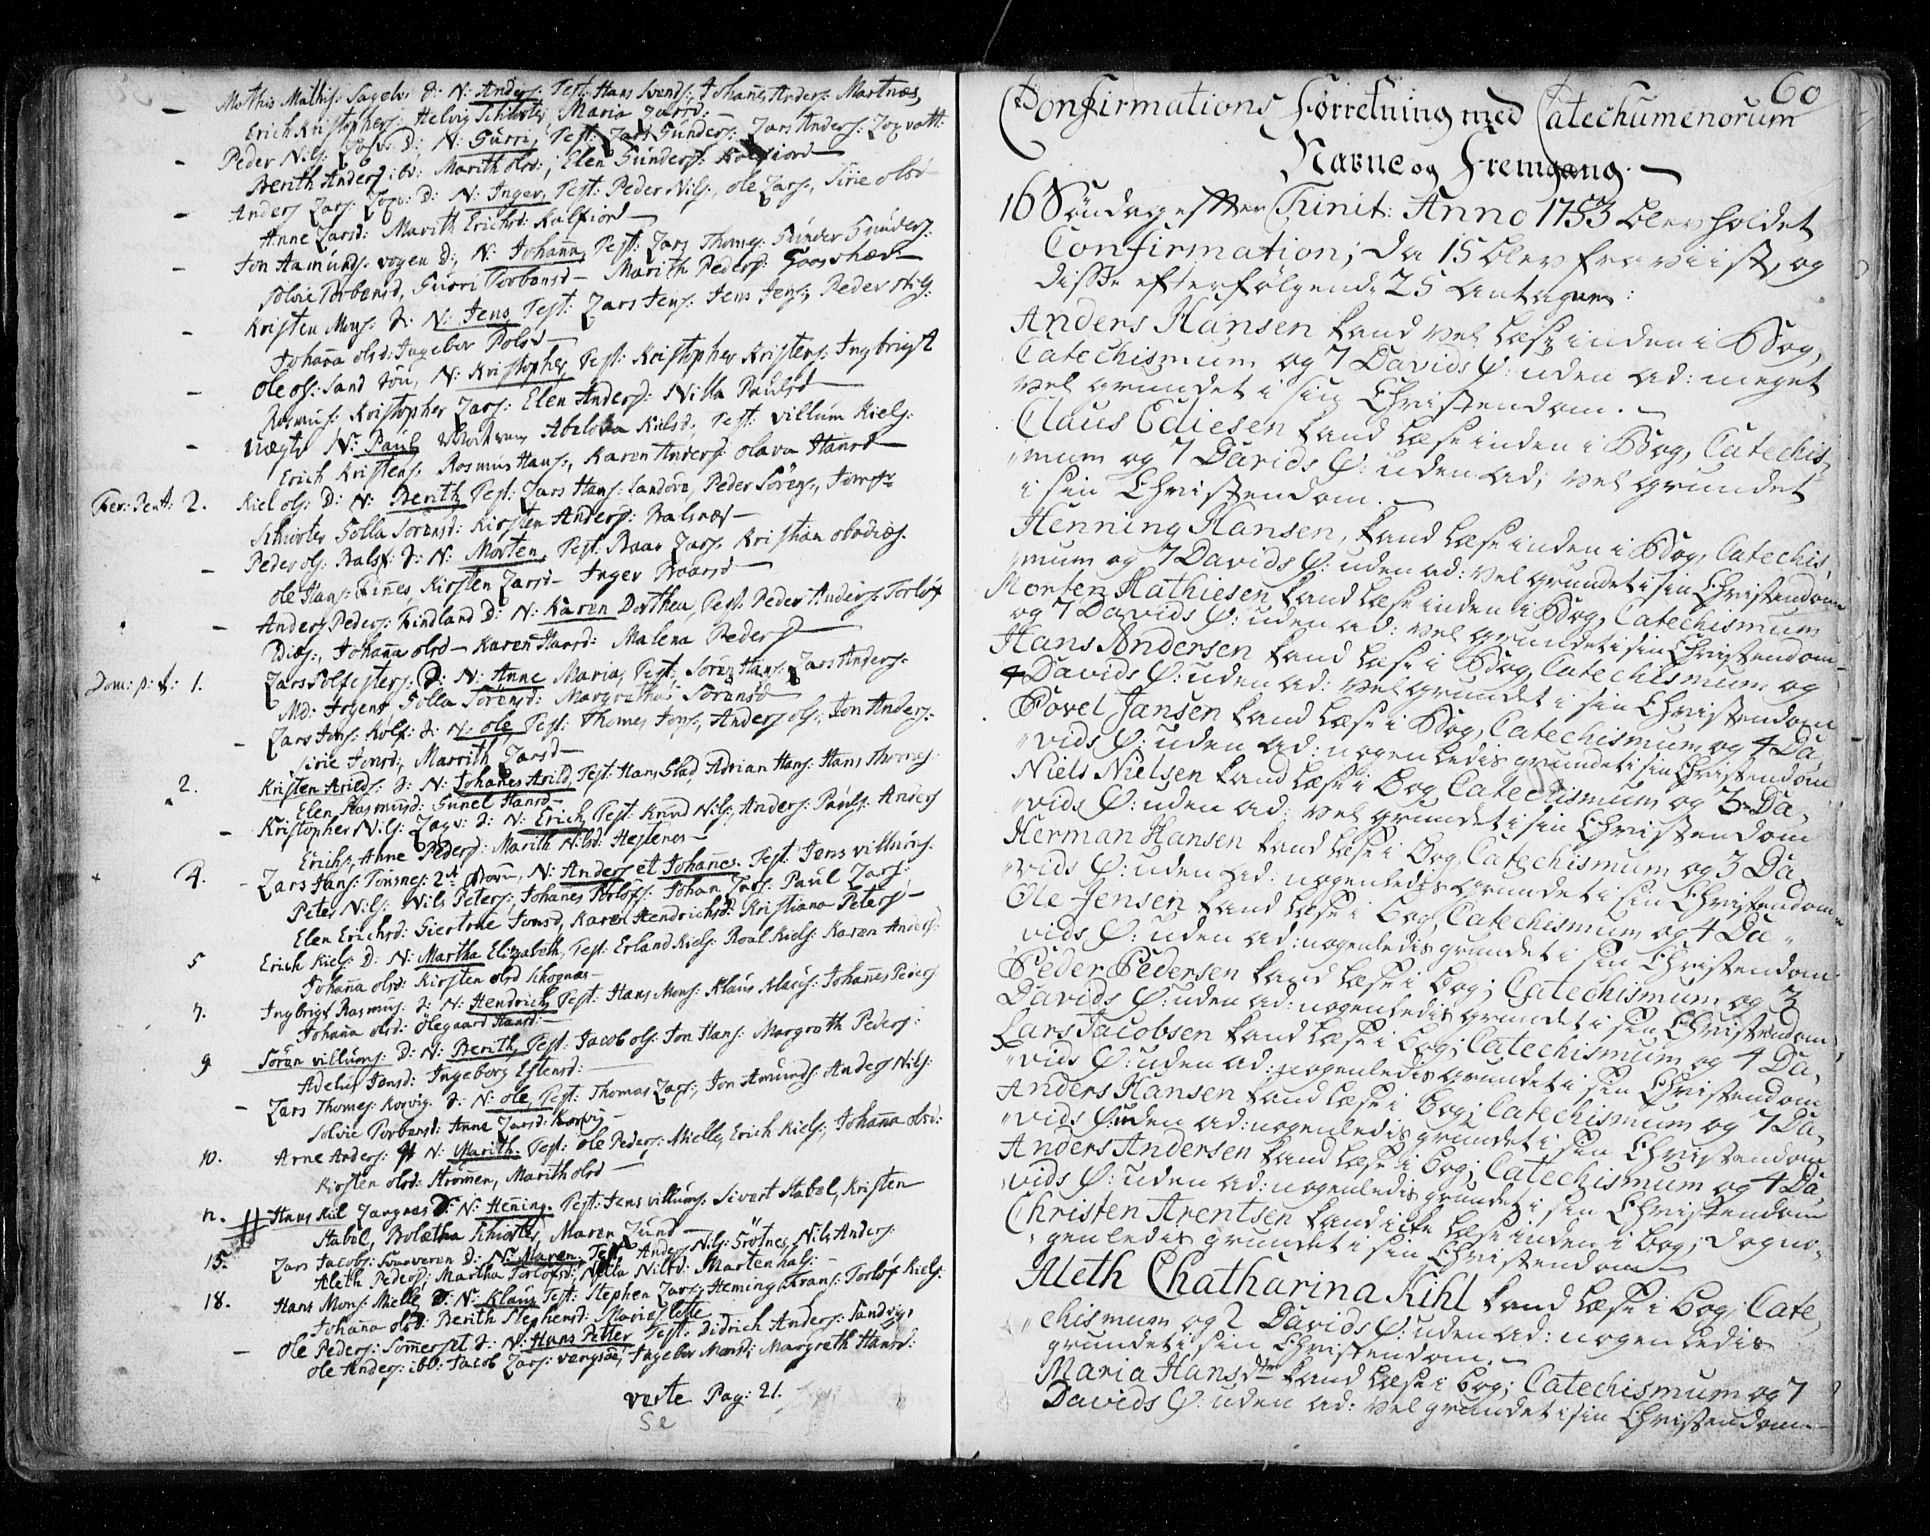 Mathis Mathis: Sagelv D: N: Anders, Test: Hans Svends: Johañes Anders: Martnæs,
Erich Kristophers: Helvig Schiøtz, Maria Larsd:
Peder Nils: D: N: Gurri, Test: Lars Gunders: Lars Anders:
Berith Anders: ib: Marith Olsd: Elen Gunders: Kalfiord
Anders Lars: D: N: Inger, Test: Peder Nils: Ole Lars: Sirie Olsd
Anne Larsd: Marith Erichsd: Kalfiord
Jon Aamunds: vogen D: N: Johaña, Test: Lars Thomes: Gunder Gunders:
Solvie Torbensd, Gurri Torbensd Marith Pedersd:
Kristen Mons: D: N: Jens, Test: Lars Jens: Jens Jens: Peder Nils:
Johaña Olsd: Ingebor Polsd
Ole Ols: Sand N: Kristopher, Test: Kristopher Kristens: Ingbrigt
Rasmus: Kristopher Lars: Elen Anders: Nilla Paulsd
N: Paul Abelona Nielsd, Test: Villum Niels:
Erich Kristens: Rosmus Hans: Karen Anders: Olava Hansd
Fer: Pent: 2. Kiel Ols: D: N: Berith, Test: Lars Hans: Sandøre, Peder Sørens:
Schiøtz Golla Sørensd: Kirsten Anders: Balsnæs
Peder Ols: Balsf: D: N: Morten, Test: Roar Lars: Kristian
Ole Hans: Finnes, Kirsten Larsd Inger Roarsd
Anders Peders: Kindland D: N: Karen Dorthea, Test: Peder Anders: Torlof
Johaña Olsd Karen Hansd: Malena Peders
Dom: p: t: 1. Lars D: N: Anne Maria, Test: Søren Hans: Lars Anders:
Md: Irgens Golla Sørensd: Margretha Sørensd
Lars Jons: D: N: Ole, Test: Thomes Jons: Anders Ols: Jon Anders:
Sirie Jonsd, Marith Larsd
2. Kristen Arilds: D: N: Johañes Arild, Test: Hans Stad, Adrian Hans: Hans Thomes:
Elen Rasmusd: Gunel Hansd
Kristopher Nils: D: N: Erich, Test: Knud Nils: Anders Pauls: Anders
Erichs: Anne Peders: Marith Nilsd: Hestenes
4. Lars Hans: Tønsnes: N: Anders et Johañes. Test: Jens Villums:
Peter Nils: Nils Peters: Johanes Johan Lars: Paul Lars:
Elen Erichsd: Giertrue Jonsd, Karen Hendrichsd: Kristiana Peters
5 Erich Kiels: D: N: Martha Elizabeth, Test: Erland Kiels: Roal Kiels: Karen Anders:
Johaña Olsd: Kirsten Olsd Skognæs
7. Ingbrigt Rasmus: D: N: Hendrich, Test: Hans Mons: Klaus Klaus: Johañes Peders
Johaña Olsd: Olegaard Hansd:
9 Søren Villums: D: N: Berith, Test: Jacob Ols: Jon Hans: Margreth Peders:
Adelus Jensd: Ingeborg Estensd:
Lars Thomes: Korvig D: N: Ole, Test: Thomas Lars: Jon Amunds: Anders Nils:
Solvie Torbensd: Anne Larsd: Korvig
10. Arne Anders: N: Marith. Test: Ole Peders: Mielle, Erich Kiels: Johaña Olsd:
Kirsten Olsd: Strømen, Marith Olsd
11. Hans Kiil D: N: Hening. Test: Jens Villums: Sivert Stabel, Kristen
Stabel, Boletha Schiøtz, Maren Lund
15. Lars Jacobs: D: N: Maren, Test: Anders Nils: Grøtnes, Nils Anders:
Aleth Peders: Martha Torlofsd: Nilla Nilsd: Martenhals
18. Hans Mons: Mielle D: N: Klaus Test: Stephen Lars: Heming Frans: Torlof Kiels:
Johaña Olsd: Berith Stephensd: Maria
Ole Peders: Somerset D: N: Hans Petter Test: Didrich Anders: Sandvig,
Ole Anders: ibd: Jacob Lars: Ingebor Monsd: Margreth Hansd:
verte Pag: 21.
60
Confirmations Forretning med Catechumenorum
Navne og Fremgang.
16 Søndag efter Trinit: Anno 1753 blev holdet
Confirmation; da 15 blev fraviist, og
disse efterfølgende 25 antagne:
Anders Hansen kand vel læse inden i Bog,
Catechismum og 7 Davids Ψ: uden ad: meget
vel grundet i sin Christendom.
Claus Ediesen kand læse inden i Bog, Catechis,
mum og 7 Davids Ψ: uden ad; vel grundet
i sin Christendom.
Henning Hansen, kand læse inden i Bog, Catechis,
mum og 7 Davids Ψ: uden ad: vel grundet i sin Christendom
Morten Mathiesen kand læse inden i Bog, Catechismum
og 7 Davids Ψ: uden ad: vel grundet i sin Christendom
Hans Andersen kand læse i Bog, Catechismum og
4 Davids Ψ: uden ad: vel grundet i sin Christendom
Povel Jansen kand læse i Bog, Catechismum og 4 Da,
vids Ψ: uden ad: nogenledis grundet i sin Christendom
Niels Nielsen kand læse i Bog Catechismum og 3 Da,
vids Ψ: uden ad: vel grundet i sin Christendom
Herman Hansen kand læse i Bog, Catechismum og 3 Da,
vids Ψ: uden ad: nogenledis grundet i sin Christendom
Ole Jensen kand læse i bog, Catechismum og 4 Da,
vids Ψ: uden ad: nogenledis grundet i sin Christendom
Peder Pedersen kand læse i bog; Catechismum og 3
Davids Ψ: uden ad: nogenledis grundet i sin Christendom
Lars Jacobsen kand læse i bog; Catechismum og 4 Da,
vids Ψ: uden ad: nogenledis grundet i sin Christendom
Anders Hansen kand læse i bog; Catechismum og 7 Da,
vids Ψ: uden ad: nogenledis grundet i sin Christendom
Anders Andersen kand læse i bog; Catechismum og 4 Da,
vids Ψ: uden ad: nogenledis grundet i sin Christendom
Christen Arentsen kand icke læse inden i bog; dog no,
genledis grundet i sin Christendom
Aleth Chatharina Kihl kand læse i bog; Cate,
chismum og 2 Davids Ψ: uden ad: nogen ledis
grundet i sin Christendom.
Maria Hansdtr kand læse i bog; Catechismum og 7
Davids Ψ: uden ad: vel grundet i sin Christendom